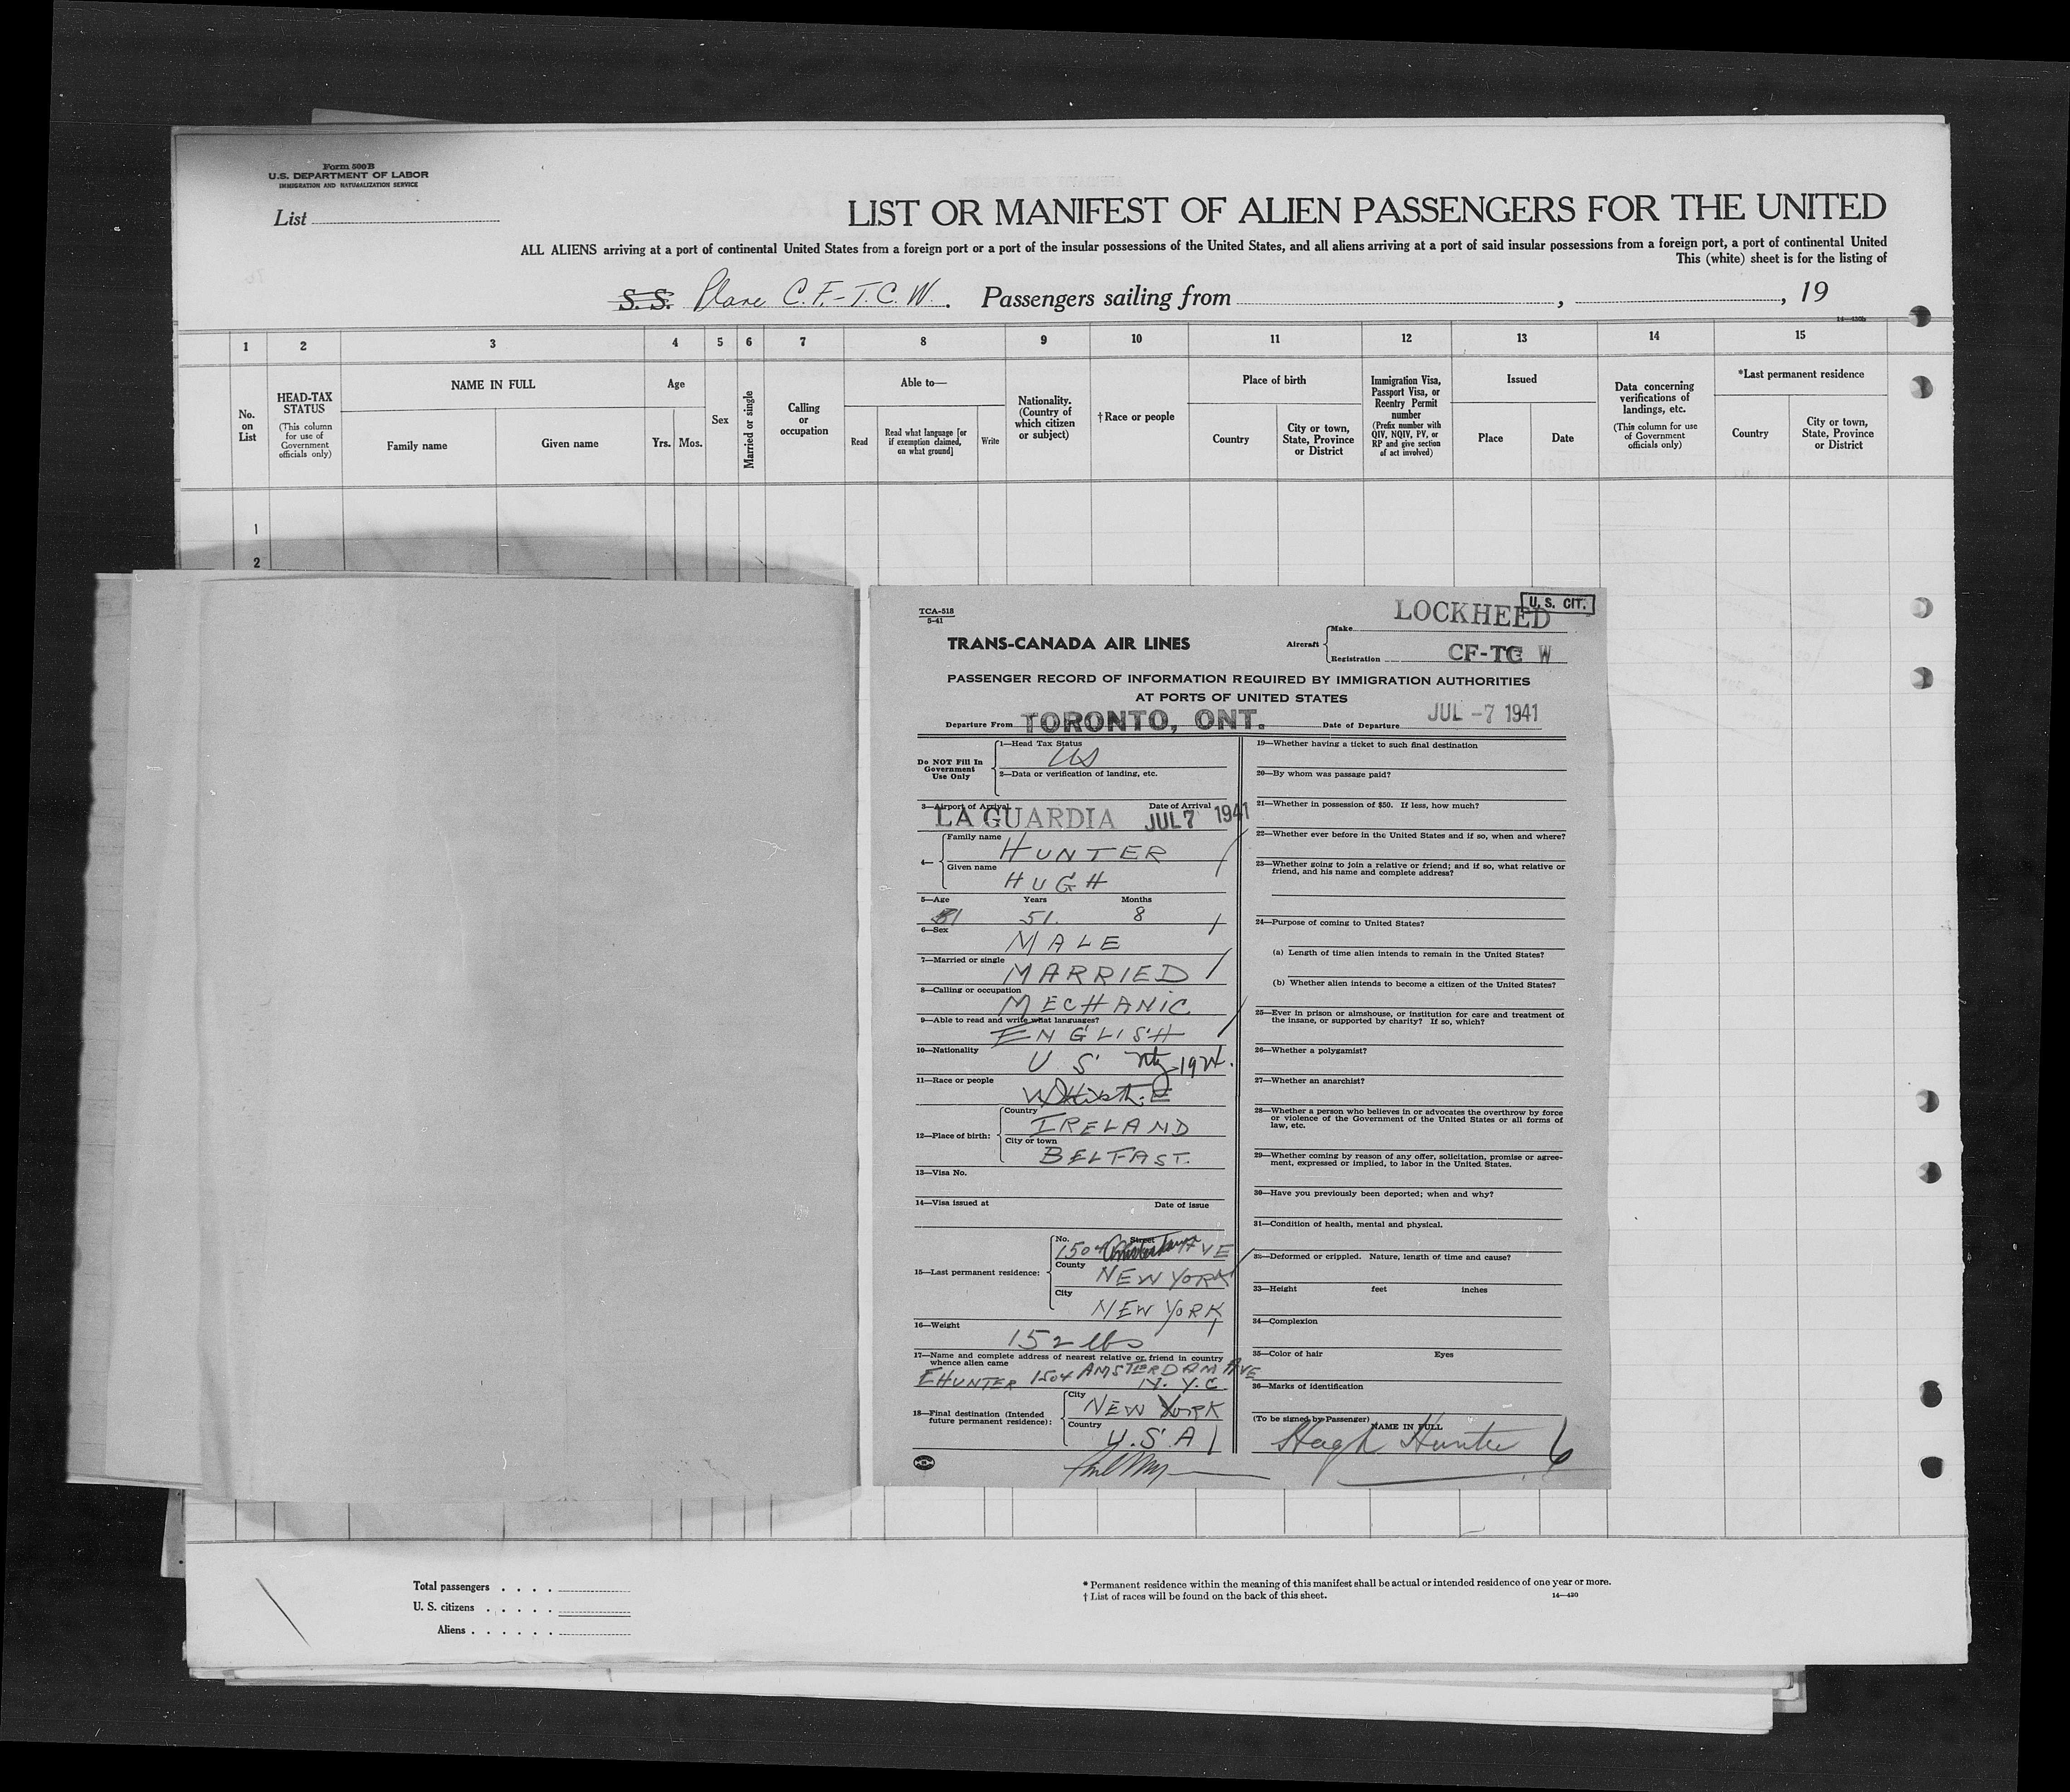 Form 500B
U.S. DEPARTMENT OF LABOR
IMMIGRATION AND NATURALIZATION SERVICE
List
LIST OR MANIFEST OF ALIEN PASSENGERS FOR THE UNITED
ALL ALIENS arriving at a port of continental United States from a foreign port or a port of the insular possessions of the United States, and all aliens arriving at a port of said insular possessions from a foreign port, a port of continental United
This (white) sheet is for the listing of
S. S. Plane C.F.-T.C.W. Passengers sailing from , , 19
14—430b
1 2 3 4 5 6 7 8 9 10 11 12 13 14 15
No. on List
HEAD-TAX STATUS (This column for use of Government officials only)
NAME IN FULL
Family name Given name
Age
Yrs. Mos.
Sex
Married or single
Calling or occupation
Able to—
Read Read what language [or if exemption claimed, on what ground] Write
Nationality. (Country of which citizen or subject)
† Race or people
Place of birth
Country City or town, State, Province or District
Immigration Visa, Passport Visa, or Reentry Permit number (Prefix number with QIV, NQIV, PV, or RP and give section of act involved)
Issued
Place Date
Data concerning verifications of landings, etc. (This column for use of Government officials only)
*Last permanent residence
Country City or town, State, Province or District
1
2
TCA-518
5-41
TRANS-CANADA AIR LINES
U. S. CIT.
Aircraft
Make LOCKHEED
Registration CF-TC W
PASSENGER RECORD OF INFORMATION REQUIRED BY IMMIGRATION AUTHORITIES
AT PORTS OF UNITED STATES
Departure From TORONTO, ONT. Date of Departure JUL -7 1941
Do NOT Fill In Government Use Only
1—Head Tax Status
US
2—Data or verification of landing, etc.
3—Airport of Arrival Date of Arrival
LA GUARDIA JUL 7 1941
4—
Family name HUNTER
Given name HUGH
5—Age Years Months
51. 8
6—Sex
MALE
7—Married or single
MARRIED
8—Calling or occupation
MECHANIC
9—Able to read and write what languages?
ENGLISH
10—Nationality
U S
11—Race or people
12—Place of birth:
Country
IRELAND
City or town
BELFAST.
13—Visa No.
14—Visa issued at Date of issue
15—Last permanent residence:
No. Street
1504 AVE
County
NEW YORK
City
NEW YORK
16—Weight
152 lbs
17—Name and complete address of nearest relative or friend in country whence alien came
E HUNTER 1504 AMSTERDAM AVE
N. Y. C.
18—Final destination (Intended future permanent residence):
City
NEW YORK
Country
U.S.A
19—Whether having a ticket to such final destination
20—By whom was passage paid?
21—Whether in possession of $50. If less, how much?
22—Whether ever before in the United States and if so, when and where?
23—Whether going to join a relative or friend; and if so, what relative or
friend, and his name and complete address?
24—Purpose of coming to United States?
(a) Length of time alien intends to remain in the United States?
(b) Whether alien intends to become a citizen of the United States?
25—Ever in prison or almshouse, or institution for care and treatment of
the insane, or supported by charity? If so, which?
26—Whether a polygamist?
27—Whether an anarchist?
28—Whether a person who believes in or advocates the overthrow by force
or violence of the Government of the United States or all forms of
law, etc.
29—Whether coming by reason of any offer, solicitation, promise or agree-
ment, expressed or implied, to labor in the United States.
30—Have you previously been deported; when and why?
31—Condition of health, mental and physical.
32—Deformed or crippled. Nature, length of time and cause?
33—Height feet inches
34—Complexion
35—Color of hair Eyes
36—Marks of identification
(To be signed by Passenger) NAME IN FULL
Hugh Hunter 6
Total passengers . . . .
U. S. citizens . . . . .
Aliens . . . . . .
* Permanent residence within the meaning of this manifest shall be actual or intended residence of one year or more.
† List of races will be found on the back of this sheet.
14—430